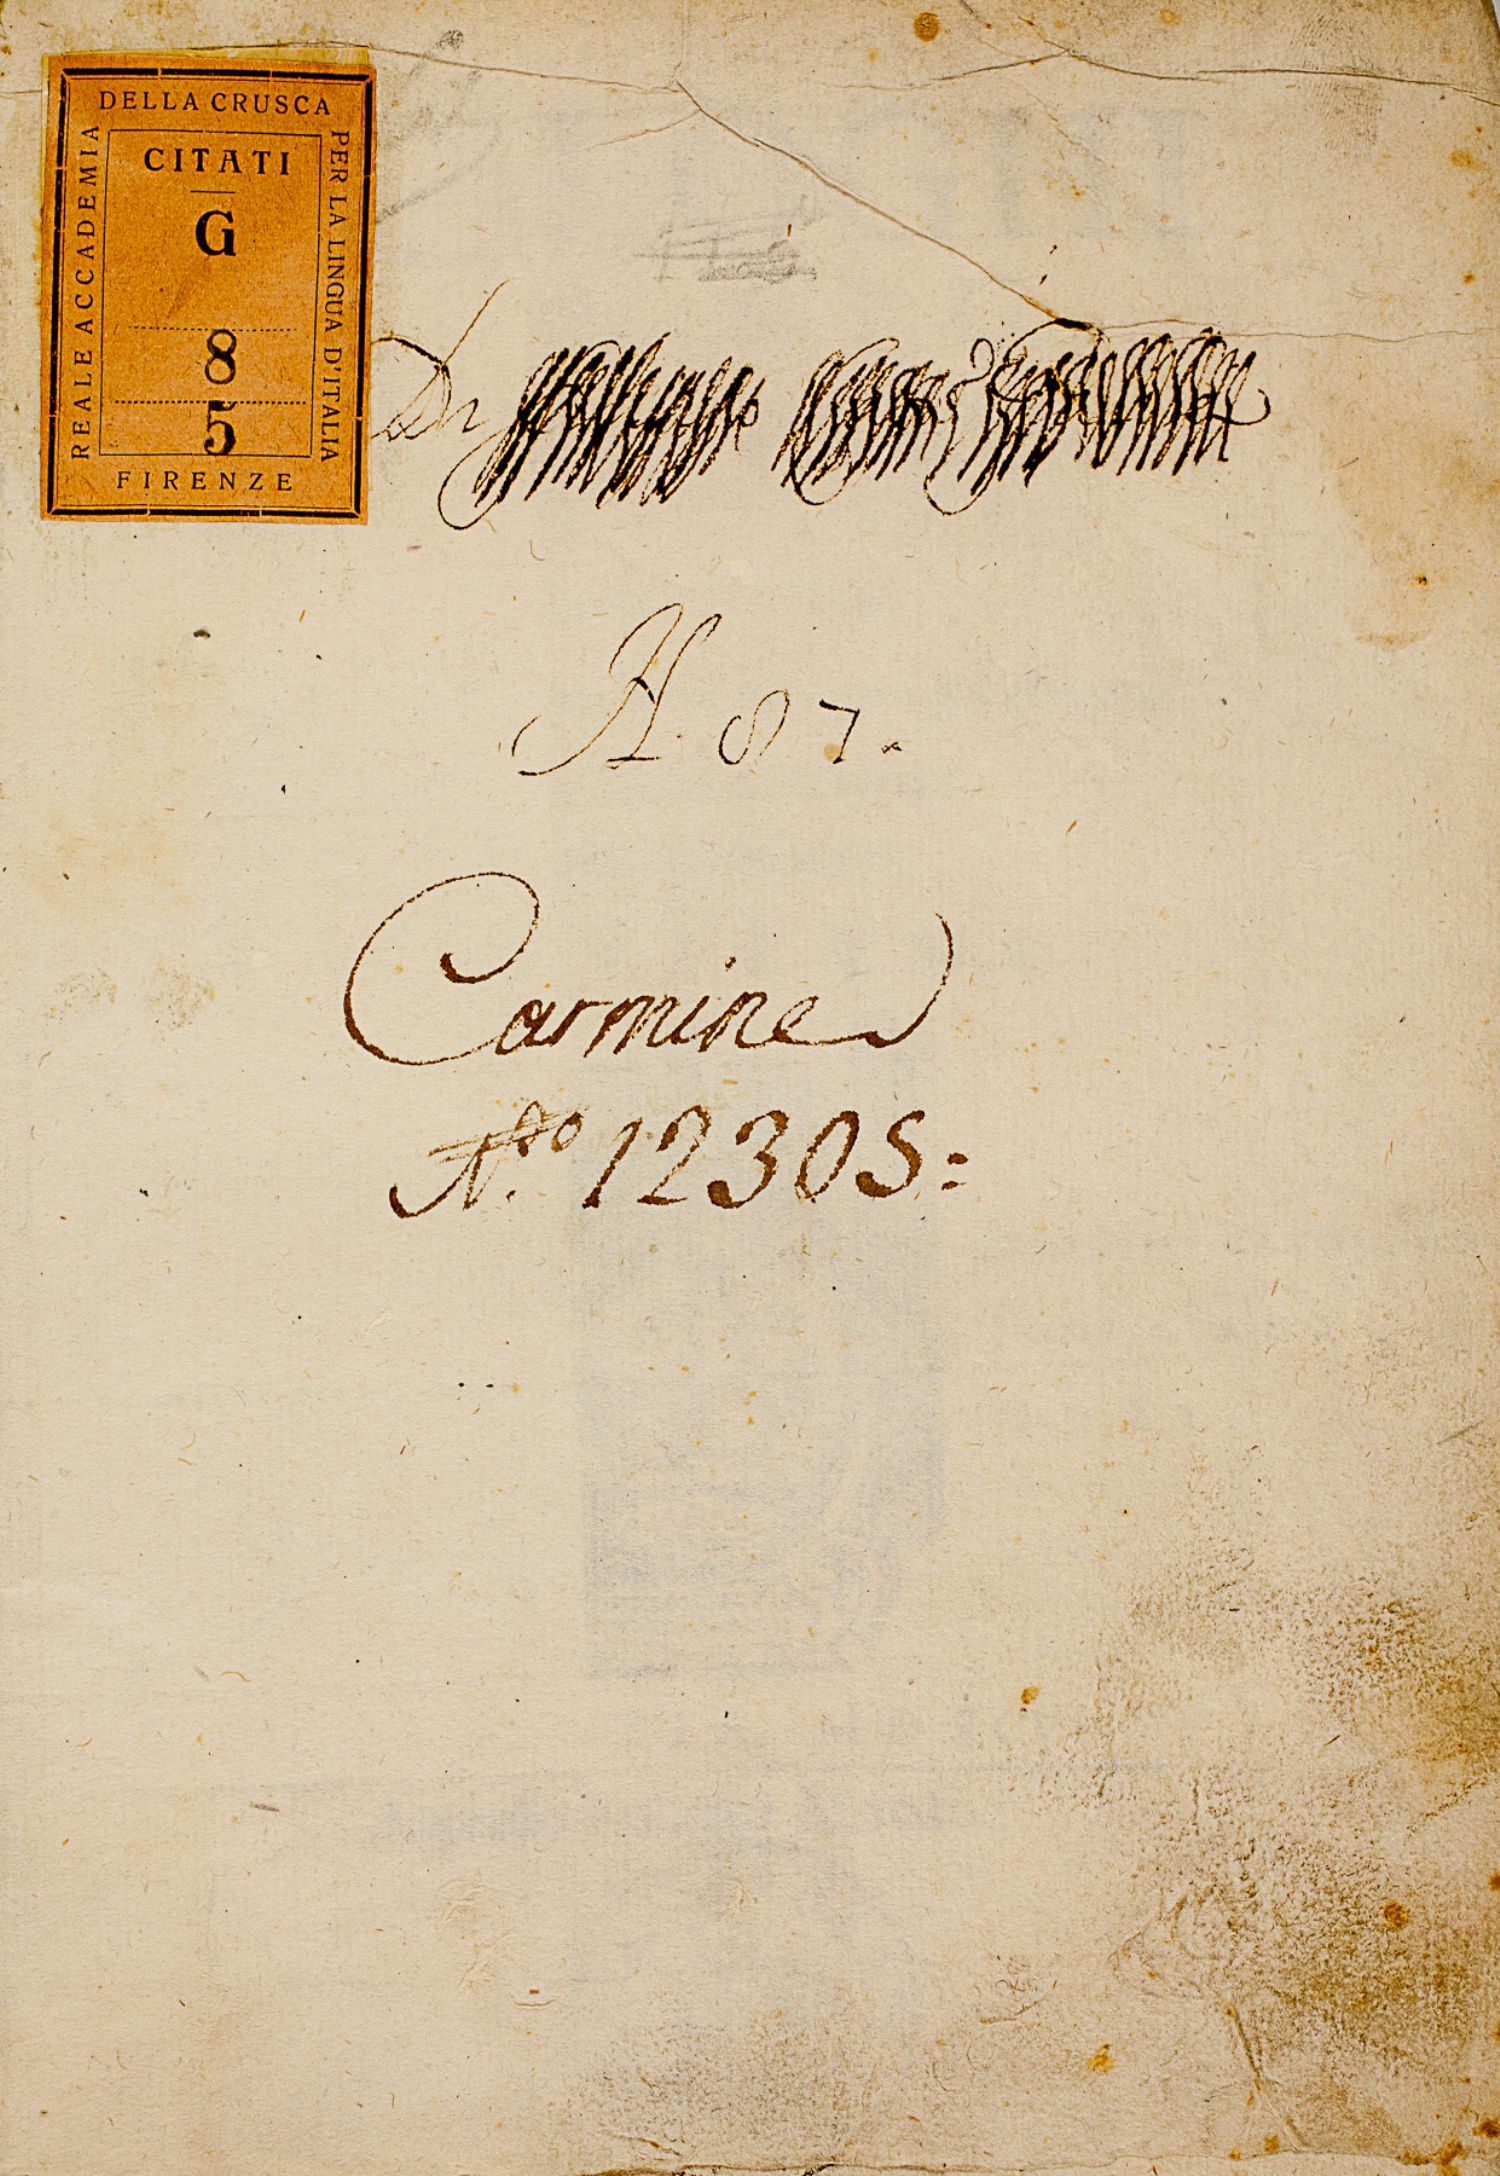 REALE ACCADEMIA
DELLA CRUSCA
PER LA LINGUA D'ITALIA
FIRENZE
CITATI
G
8
5
Di
A. 87.
Carmine
N.º 12305: